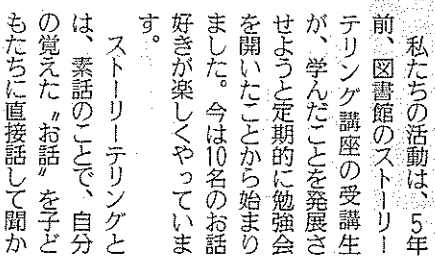 私たちの活動は、５年
前、図書館のストーリー
テリング講座の受講生
が、学んだことを発展さ
せようと定期的に勉強会
を開いたことから始まり
ました。今は10名のお話
好きが楽しくやっていま
す。
　ストーリーテリングと
は、素話のことで、自分
の覚えた〝お話〟を子ど
もたちに直接話して聞か